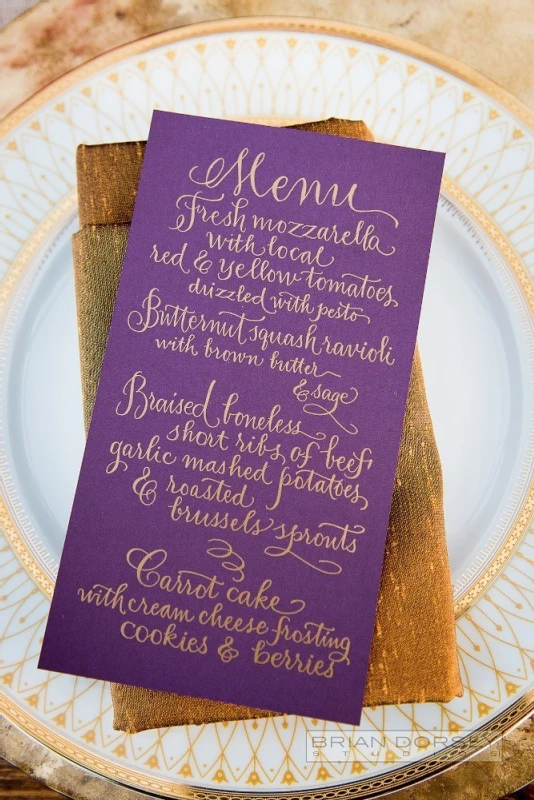 Menu
Fresh mozzarella
with local
red & yellow tomatoes
drizzled with pesto
Butternut squash ravioli
with brown butter
& sage
Braised boneless
short ribs of beef
garlic mashed potatoes
& roasted
brussels sprouts
Carrot cake
with cream cheese frosting
cookies & berries
BRIAN DORSEY
STUDIOS